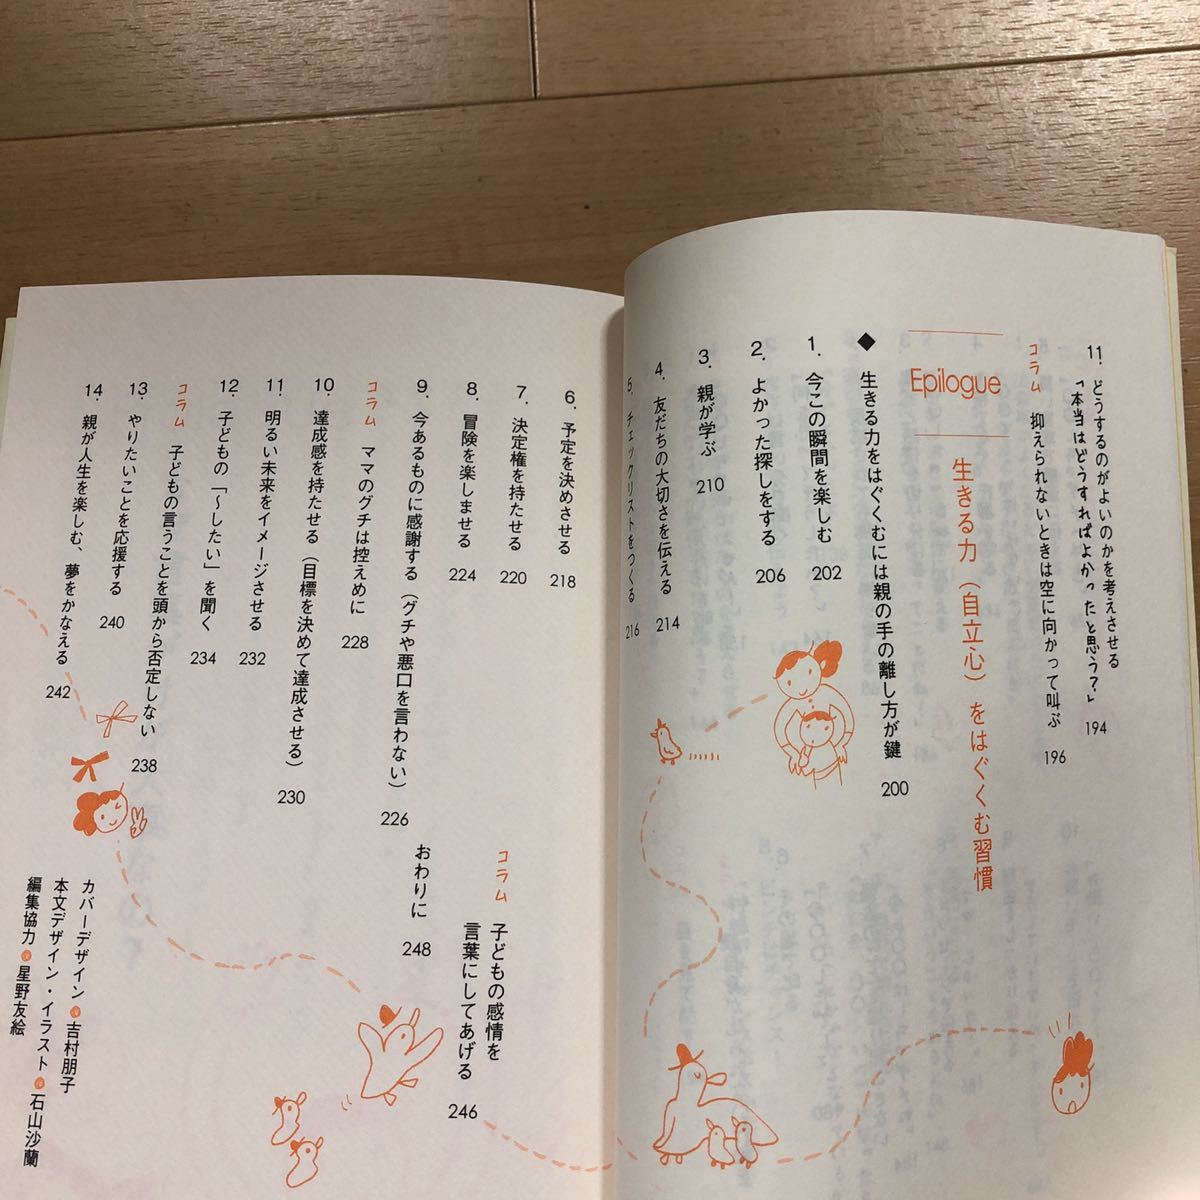 11. どうするのがよいのかを考えさせる
「本当はどうすればよかったと思う？」 194
コラム 抑えられないときは空に向かって叫ぶ 196
Epilogue 生きる力（自立心）をはぐくむ習慣
◆ 生きる力をはぐくむには親の手の離し方が鍵 200
1. 今この瞬間を楽しむ 202
2. よかった探しをする 206
3. 親が学ぶ 210
4. 友だちの大切さを伝える 214
5. チェックリストをつくる 216
6. 予定を決めさせる 218
7. 決定権を持たせる 220
8. 冒険を楽しませる 224
9. 今あるものに感謝する（グチや悪口を言わない） 226
コラム ママのグチは控えめに 228
10. 達成感を持たせる（目標を決めて達成させる） 230
11. 明るい未来をイメージさせる 232
12. 子どもの「〜したい」を聞く 234
コラム 子どもの言うことを頭から否定しない 238
13. やりたいことを応援する 240
14. 親が人生を楽しむ、夢をかなえる 242
コラム 子どもの感情を
言葉にしてあげる 246
おわりに 248
カバーデザイン 吉村朋子
本文デザイン・イラスト 石山沙蘭
編集協力 星野友絵